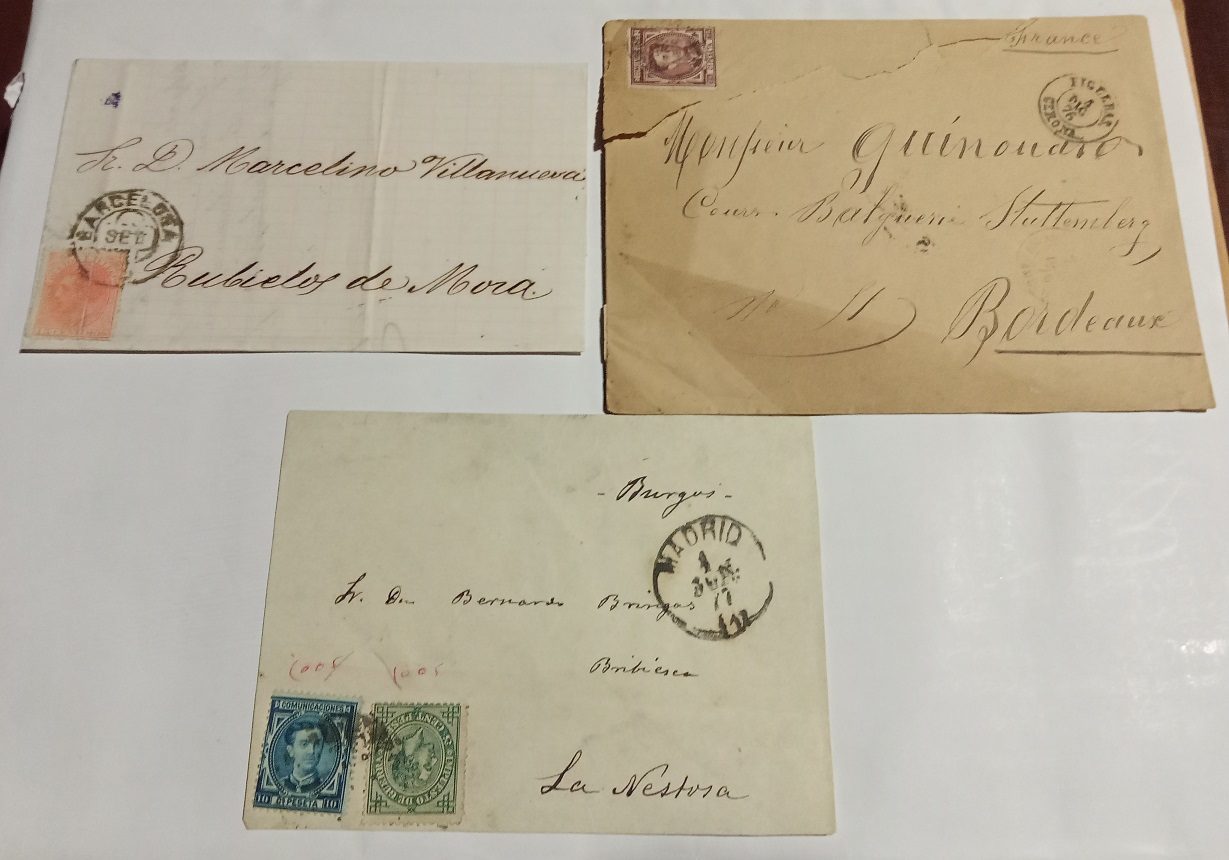 Sr. D. Marcelino Villanueva
BARCELONA
SET
Rubielos de Mora
France
FIGUERAS
4
DIC
76
GERONA
Monsieur Quinoudro
Cours Balguerie Stuttemberg
Bordeaux
- Burgos -
MADRID
1
JUN.
77
(1)
Sr. Dn Bernardo Bringas
Bribiesca
1005 1005
COMUNICACIONES
10 Cs PESETA 10
La Nestosa